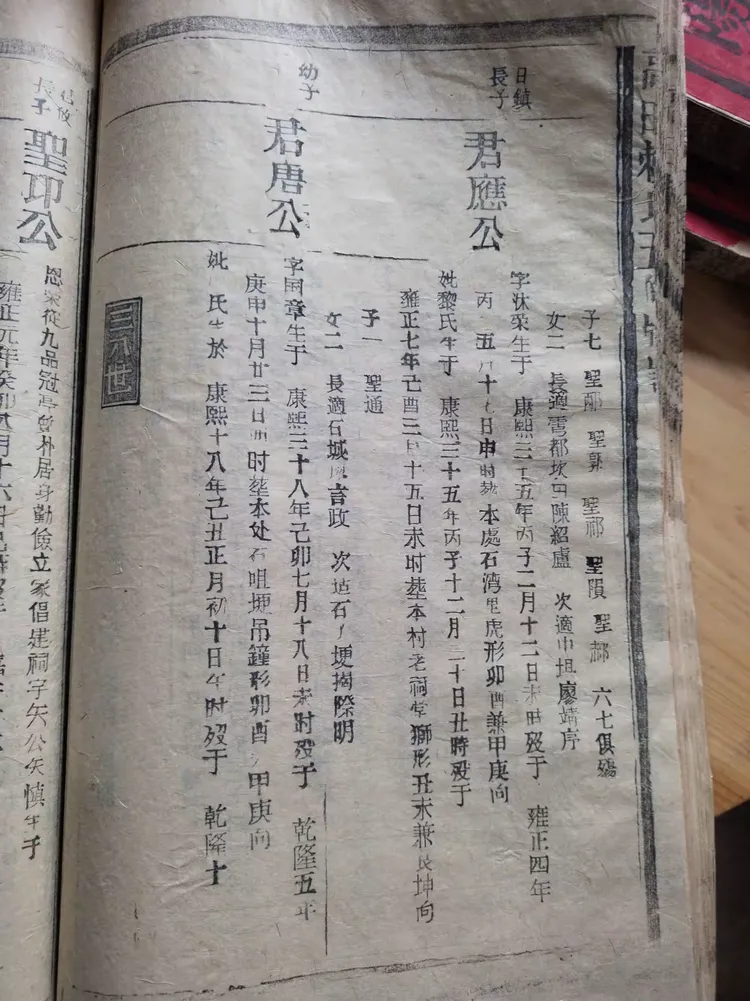 子七 聖郙 聖郭 聖祁 聖隕 聖郝 六七俱殤
女二 長適雩都坎田陳紹盧 次適中坦廖靖序
日鎮
長子
君應公
字汰荣生于 康熙三十五年丙子二月十二日未时殁于 雍正四年
丙 五月十 日申时塟本處石湾里虎形卯酉兼甲庚向
妣黎氏生于 康熙三十五年丙子十二月二十日丑時殁于
雍正七年己酉二月十五日未时塟本村老祠堂獅形丑未兼艮坤向
子一 聖通
女二 長適石城 言政 次适石 埂 際明
幼子
君唐公
字国章生于 康熙三十八年己卯七月十八日未时殁于 乾隆五年
庚申十月廿三日酉时塟本处石咀塘吊鐘形卯酉 甲庚向
妣 氏生於 康熙十八年己丑正月初十日午时殁于 乾隆十
三 世
長子
聖印公
恩榮從九品冠帶 朴居身勤儉立家倡建祠宇矢公矢慎生于
雍正元年癸卯八月十六日